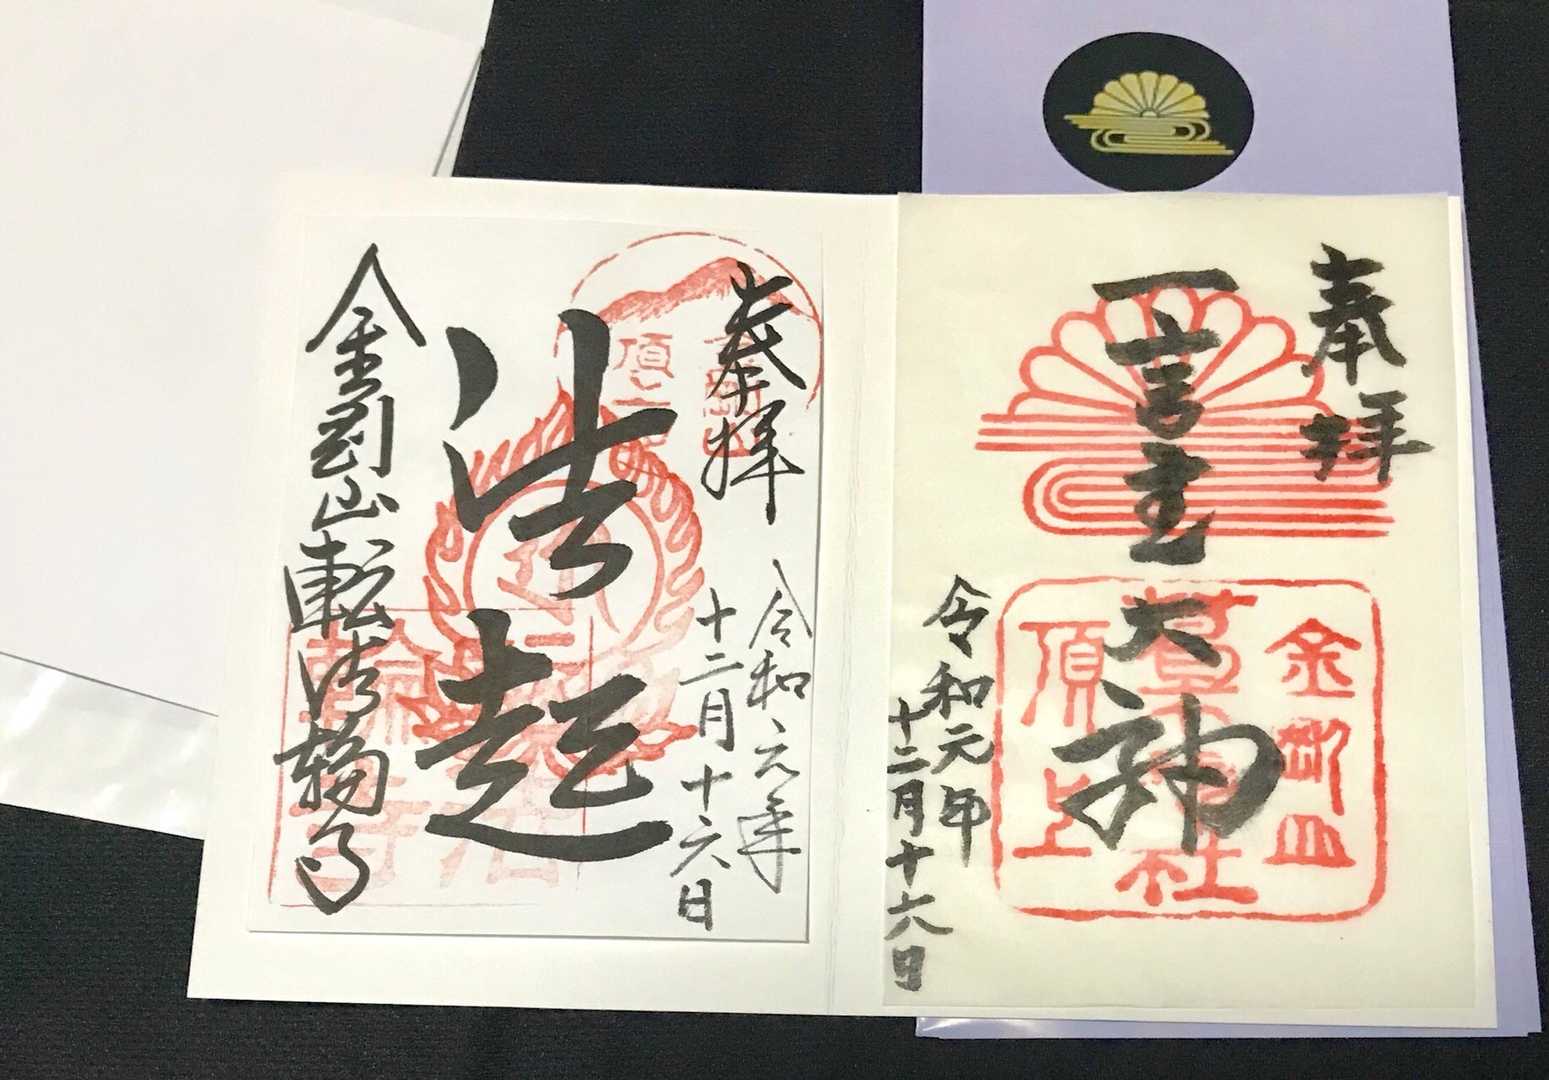 奉拝
一言主大神
金剛山
葛木神社
頂上
令和元年
十二月十六日
奉拝
令和元年
十二月十六日
法起
金剛山転法輪寺